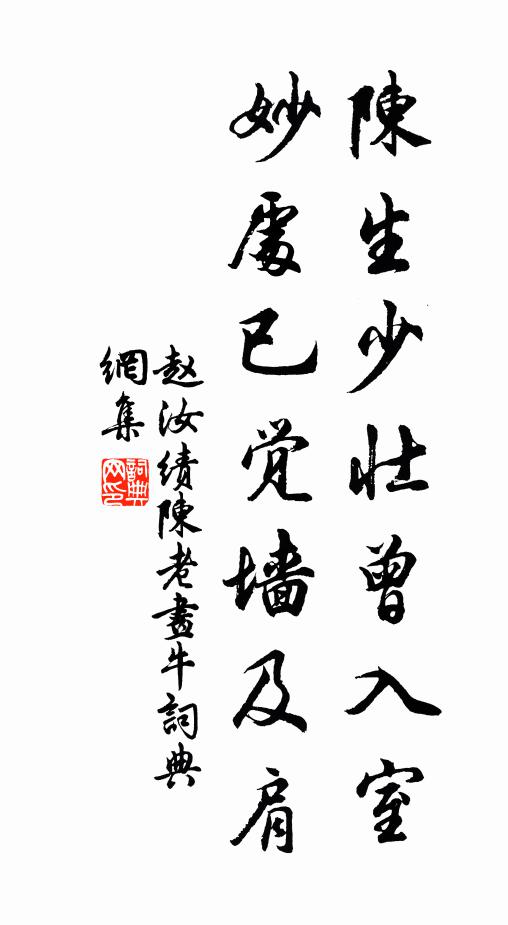 陳生少壯曾入室
妙處已觉墙及肩
赵汝績陳老畫牛詞典
網集
詞典網印